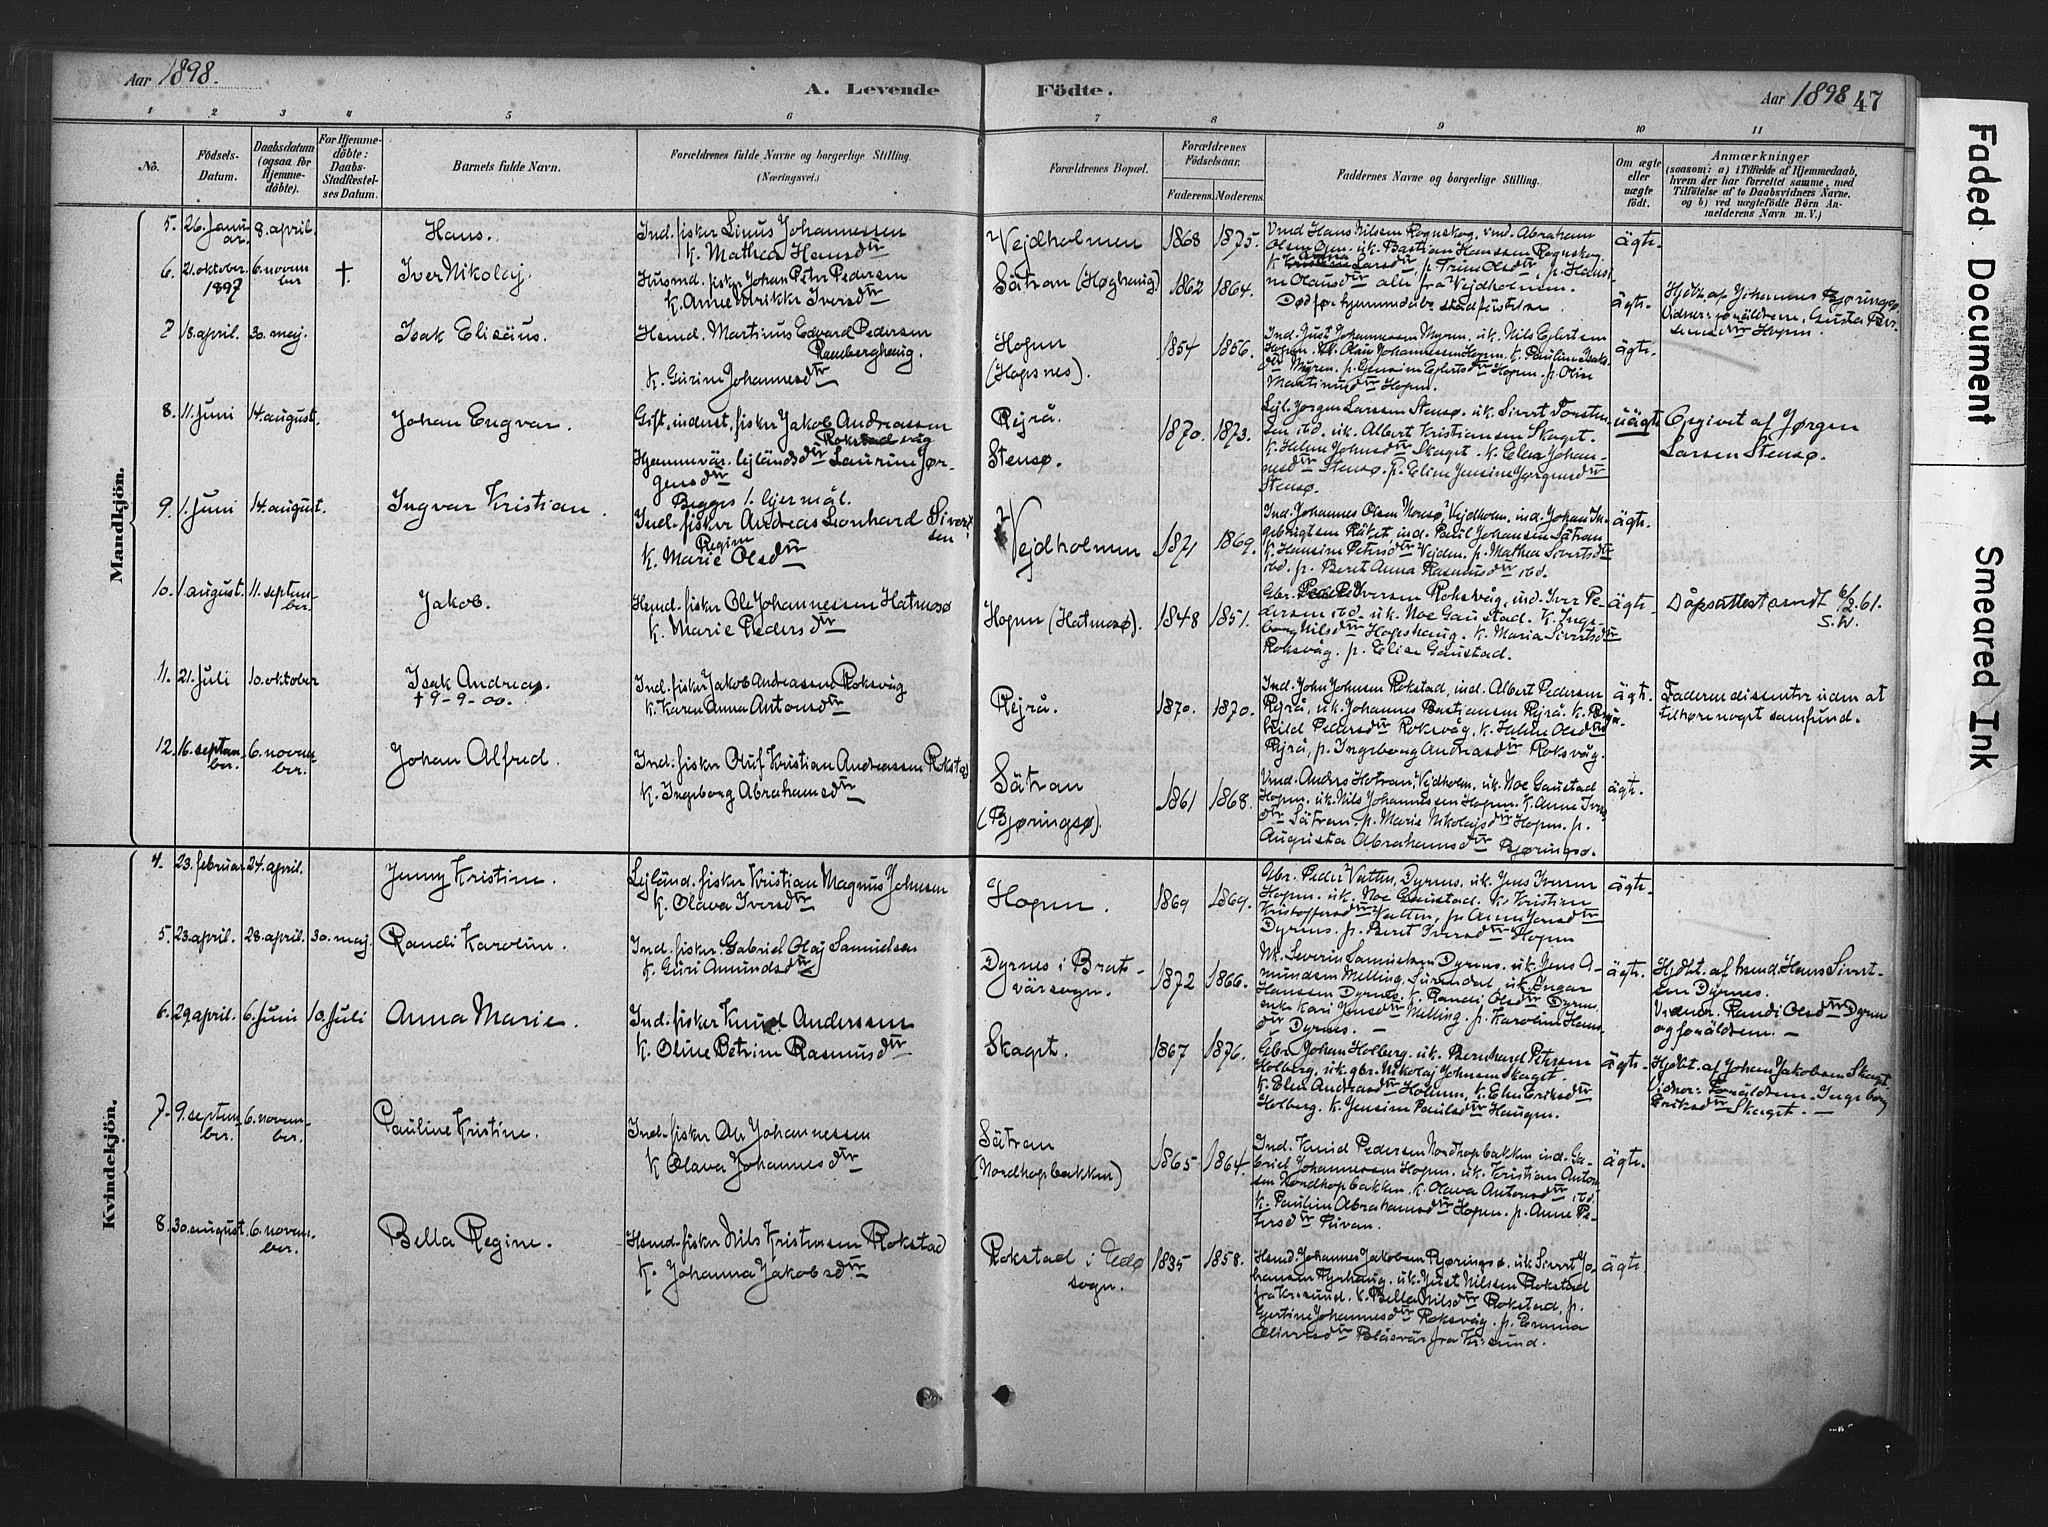 Aar 1898.
A. Levende
Födte.
Aar 1898
47
1 2 3 4 5 6 7 8 9 10 11
No.
Födsels-
Datum.
Daabsdatum
(ogsaa for
Hjemme-
döbte).
For Hjemme-
döbte:
Daabs-
Stadfæstel-
ses Datum.
Barnets fulde Navn.
Forældrenes fulde Navne og borgerlige Stilling.
(Næringsvei.)
Forældrenes Bopæl.
Forældrenes
Födselsaar.
Faderens.
Moderens.
Faddernes Navne og borgerlige Stilling.
Om ægte
eller
uægte
födt.
Anmærkninger
(saasom: a) i Tilfælde af Hjemmedaab,
hvem der har forrettet samme, med
Tilföielse af to Daabsvidners Navne,
og b) ved uægtefödte Börn An-
melderens Navn m. V.)
Mandkjön.
5. 26. Janu-
ar. 8. april.
Hans.
Ind. fisker Linus Johannessen
K. Mathea Hansdtr
Vejdholmen
1868 1875.
Vmd Hans Nilsen Rognskog, vnd. Abraham
Olsen uk. Bastian Hanssen Rognskog.
K. Larsdtr, p. Trine Olsdtr, p. Hans-
ine Olausdtr alle fra Vejdholmen.
ägte.
6. 21. oktober.
1897
6. novem
ber
†
Iver Nikolaj.
Husmd. fisker Johan Peter Pedersen
K. Anne Ulrikke Iversdtr
Sätran (Høghaug)
1862 1864.
Død før hjemmedåb. stadfästelse
ägte.
Hjdbt. af Johannes Bjøringsø.
Vidner: foräldrene, Gusta Peder-
sensdtr Hopen
7 18. april. 30. maj.
Isak Elisäus.
Hsmd. Martinus Edvard Pedersen
Ramberghaug.
K. Gurine Johannesdtr
Hopen
(Hopsnes).
1854 1856.
Ind. Just Johannessen Myren, uk. Nils Eglertsen
Hopen. uk. Olaus Johannessen Hopen. K. Pauline Isaks-
dtr Myren. p. Gensine Eglertsdtr Hopen. p. Oline
Martinusdtr Hopen.
ägte.
8. 11. Juni 14. august.
Johan Engvar.
Gift, inderst, fisker Jakob Andreassen
Roksvåg
Hjemmevär. lejländsdtr Laurine Jør-
gensdtr
Begges 1. lejermål.
Rejrå.
Stensø.
1870. 1873.
Lejl. Jørgen Larsen Stensø. uk. Sivert Torsten-
sen ibd. uk. Albert Kristiansen Skaget.
K. Helene Johnsdtr Skaget. K. Elen Johan-
nesdtr Stensø. p. Eline Jensine Jørgensdtr
Stensø.
uägte
Opgivet af Jørgen
Larsen Stensø.
9. 1. Juni 14. august.
Ingvar Kristian.
Ind. fisker Andreas Leonhard Sivert-
sen
K. Marie Regine Olsdtr
Vejdholmen
1871 1869.
Ind. Johannes Olsen Morsø, Vejdholm. ind. Johan In-
gebrigtsen Råket. ind. Paul Johansen Sätran.
K. Hansine Petersdtr Vejden. p. Mathea Sivertsdtr
ibd. p. Beret Anna Rasmusdtr ibd.
ägte.
10. 1. august. 11. septem-
ber.
Jakob.
Hsmd. fisker Ole Johannessen Hatmosø
K. Marie Pedersdtr
Hopen (Hatmosø).
1848 1851.
Gbr. Peder Iversen Roksvåg, ind. Iver Pe-
dersen ibd. uk. Noe Gaustad. K. Inge-
borg Nilsdtr Hopshaug. K. Maria Sivertsdtr
Roksvåg. p. Elise Gaustad.
ägte.
Dåpsattest sendt 6/2.61.
S.W.
11. 21. Juli 10. oktober
Isak Andreas.
† 9-9-00.
Ind. fisker Jakob Andreassen Roksvåg
K. Karen Anna Antonsdtr
Rejrå.
1870. 1870.
Ind. John Johnsen Rokstad, ind. Albert Pedersen
Rejrå, uk. Johannes Bastiansen Rejrå. K. Ragn-
hild Pedersdtr Roksvåg, K. Heline Olsdtr
Rejrå, p. Ingeborg Andreasdtr Roksvåg.
ägte.
Faderen dissenter uden at
tilhøre noget samfund.
12. 16. septem-
ber. 6. novem-
ber.
Johan Alfred.
Ind. fisker Oluf Kristian Andreassen Rokstad
K. Ingeborg Abrahamsdtr
Sätran
(Bjøringsø).
1861 1868.
Vmd. Anders Hotran, Vejdholm. uk. Noe Gaustad
Hopen. uk. Nils Johannessen Hopen. K. Anne Ivers-
dtr Sätran. p. Marie Nikolajsdtr Hopen. p.
Augusta Abrahamsdtr Bjøringsø.
ägte.
Kvindekjön.
4. 23. februar. 24. april.
Jenny Kristine.
Lejländ. fisker Kristian Magnus Johnsen
K. Olava Iversdtr
Hopen.
1869 1869.
Gbr. Peder Vatten, Dyrnes. uk. Jens Iversen
Hopen. uk. Noe Gaustad. K. Kristian
Kristoffersdtr Vatten, p. Anne Jensdtr
Dyrnes. p. Beret Iversdtr Hopen
ägte.
5. 23. april. 28. april. 30. maj.
Randi Karoline.
Ind. fisker Gabriel Olaj Samuelsen
K. Guri Amundsdtr
Dyrnes i Brat-
värsogn.
1872 1866.
Nk. Severin Samuelsen Dyrnes. uk. Jens A-
mundsen Melling, Surendal, uk. Ingar
Hanssen Dyrnes. K. Randi Olsdtr Dyrnes.
enke Kari Jensdtr Melling. p. Karoline Hans-
dtr Dyrnes. —
ägte.
Hjdbt. af hsmd. Hans Sivert-
sen Dyrnes.
Vidner. Randi Olsdtr Dyrnes
og foräldrene. —
6. 29. april. 6. Juni 10. Juli
Anna Marie.
Ind. fisker Knud Anderssen
K. Oline Petrine Rasmusdtr
Skaget.
1867 1876.
Gbr. Johan Holberg. uk. Bernhard Petersen
Holberg, uk. gbr. Nikolaj Johnsen Skaget.
K. Elen Andreasdtr Holmen, K. Elen Eriksdtr
Holberg. K. Jensine Paulsdtr Haugen.
ägte.
Hjdbt. af Johan Jakobsen Skaget.
Vidner: Foräldrene. Ingeborg
Eriksdtr Skaget. —
7. 9. septem-
ber. 6. novem-
ber.
Pauline Kristine.
Ind. fisker Ole Johannessen
K. Olava Johannesdtr
Sätran
(Nordhopbakken)
1865 1864.
Ind. Knud Pedersen Nordhopbakken ind. Ga-
briel Johannessen Hopen. uk. Kristian Anton-
sen Nordhopbakken. K. Olava Antonsdtr ibd.
K. Pauline Abrahamsdtr Hopen. p. Anne Pe-
tersdtr Rivan.
ägte.
8. 30. august. 6. novem-
ber.
Bella Regine.
Hsmd. fisker Nils Kristensen Rokstad
K. Johanna Jakobsdtr
Rokstad i Edø
sogn.
1835 1858.
Hsmd. Johannes Jakobsen Bjøringsø. uk. Sivert Jo-
hansen Myrhaug. uk. Just Nilssen Rokstad
fra Kr.sund. K. Bella Nilsdtr Rokstad, p.
Gjertine Johannesdtr Roksvåg. p. Emma
Oliversdtr Blåsvär fra Kr.sund.
ägte.
Faded Document
Smeared Ink